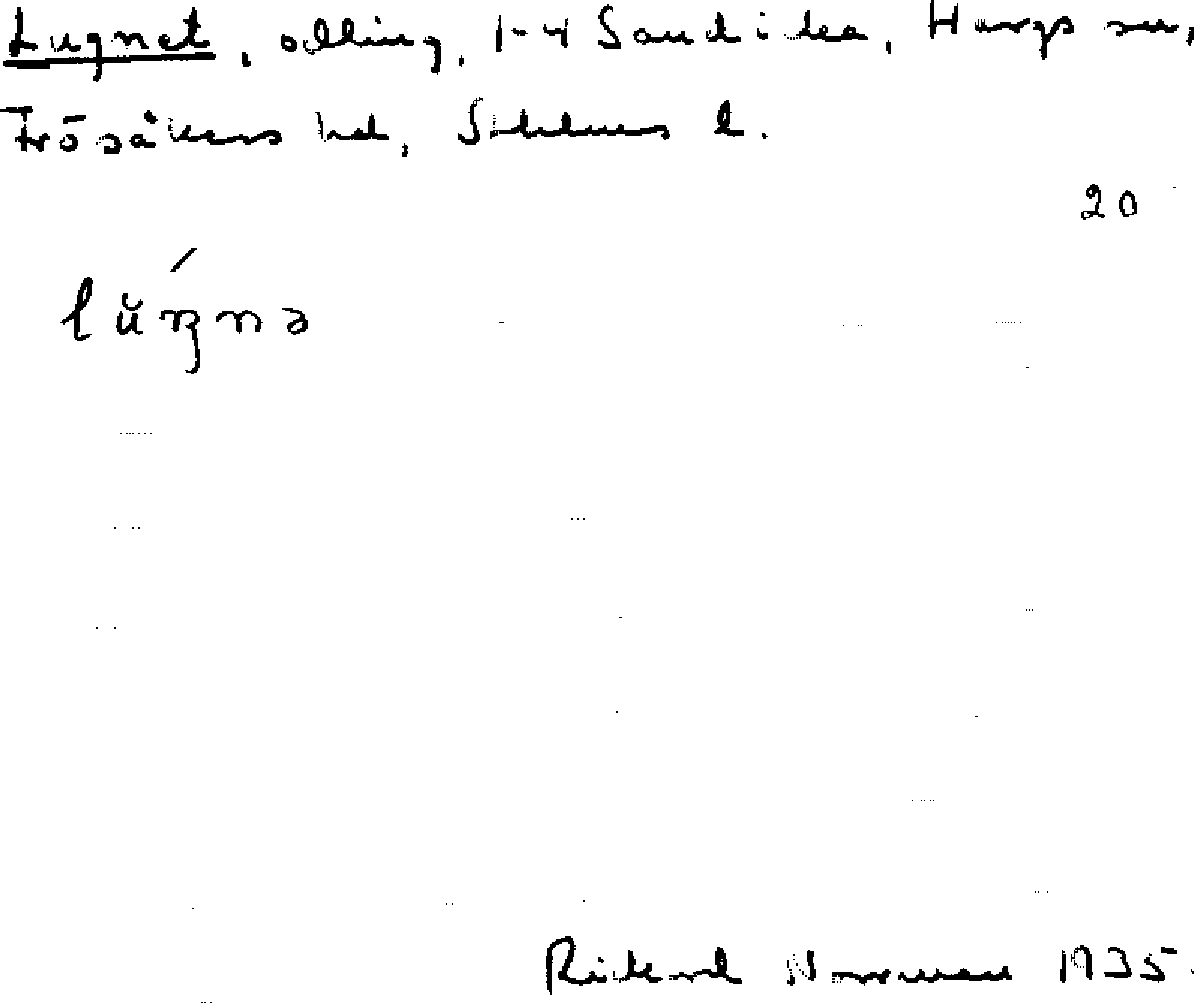 Lugnet, odling, 1-4 Sandika, Hargs sn,
Frösåkers hd, Sthlms l.
20
lŭŋnə
Rickard Norrman 1935.